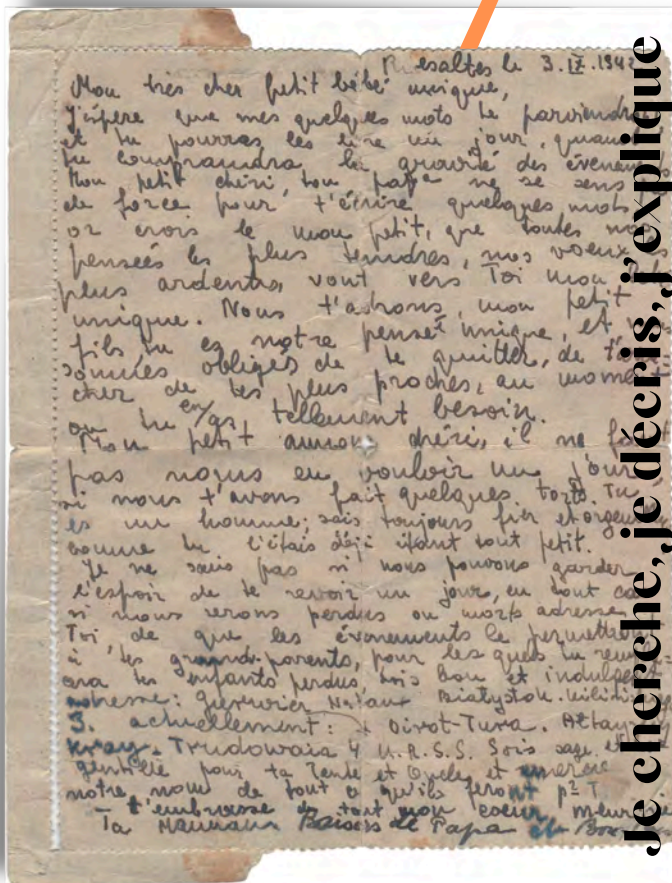 Rivesaltes le 3.IX.1942
Mon très cher petit bébé unique,
J'éspère que mes quelques mots te parviendra
et tu pourras les lire un jour, quand
tu compraindra la gravité des événements
Mon petit chéri, ton papa ne se sens
de force pour t'écrire quelques mots
or crois le mon petit, que toutes nos
pensées les plus tendres, nos voeux les
plus ardents, vont vers Toi mon
unique. Nous t'adrons, mon petit
fils tu es notre pensé unique, et
sommes obligés de te quitter, de t'
cher de tes plus proches, au moment
ou tu en as tellement besoin.
Mon petit amour chéri, il ne faut
pas nous en vouloir un jour
si nous t'avons fait quelques torts. Tu
es un homme; sois toujours fier et orgeuil
comme tu l'étais déjà étant tout petit.
Je ne sais pas si nous pouvons garder
l'espoir de te revoir un jour, en tout cas
si nous serons perdus ou morts adresse
Toi, de que les évenements le permettron
à tes grands-parents, pour les quels tu rem
tes enfants perdus, sois bon et indulgent
adresse: Białystok.
3. actuellement: Oirot-Tura. Altay
Kray. Trudowaia 4 U.R.S.S. Sois sage et
gentille pour ta Tante et Oncle et
notre nom de tout ce qu'ils feront pr T
t'embrasse de tout mon coeur meurtri
Ta Mamman Baisers de Papa
Je cherche, je décris, j'explique